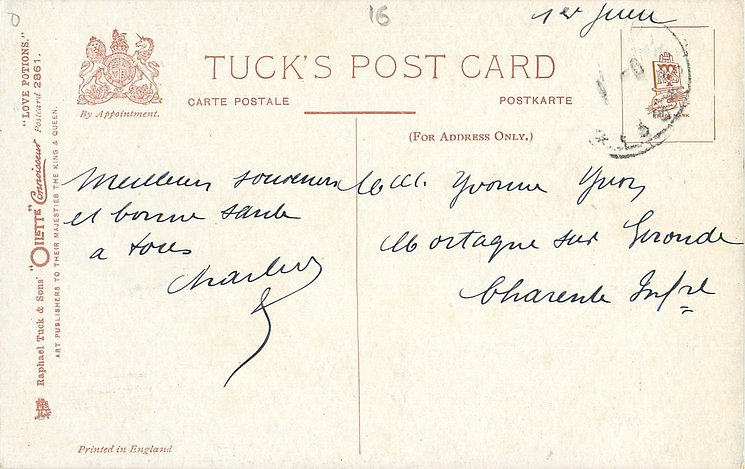 16
1er Juin
TUCK'S POST CARD
CARTE POSTALE
POSTKARTE
By Appointment.
(FOR ADDRESS ONLY.)
Meilleurs souvenirs
et bonne santé
a tous
Charles
Mlle. Yvonne
Mortagne sur Gironde
Charente Infre
Raphael Tuck & Sons' "OILETTE" Connoisseur "LOVE POTIONS."
Postcard 2861.
ART PUBLISHERS TO THEIR MAJESTIES THE KING & QUEEN.
Printed in England